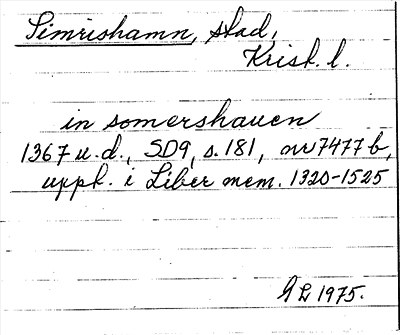 Simrishamn, stad,
Krist. l.
in somershauen
1367 u.d., SD9, s. 181, nr 7477 b,
uppt. i Liber mem. 1320-1525
G L 1975.